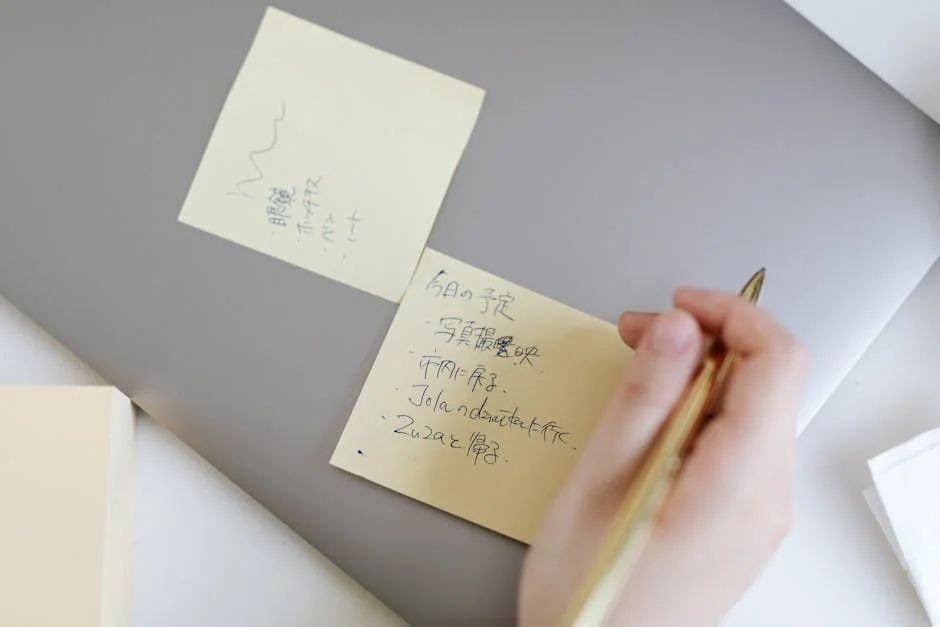 ・眼鏡
・ホッチキス
・ペン
・ノート
今日の予定
・写真撮影
・市内に戻る.
・Jolaの に行く
・Zuzaと帰る.